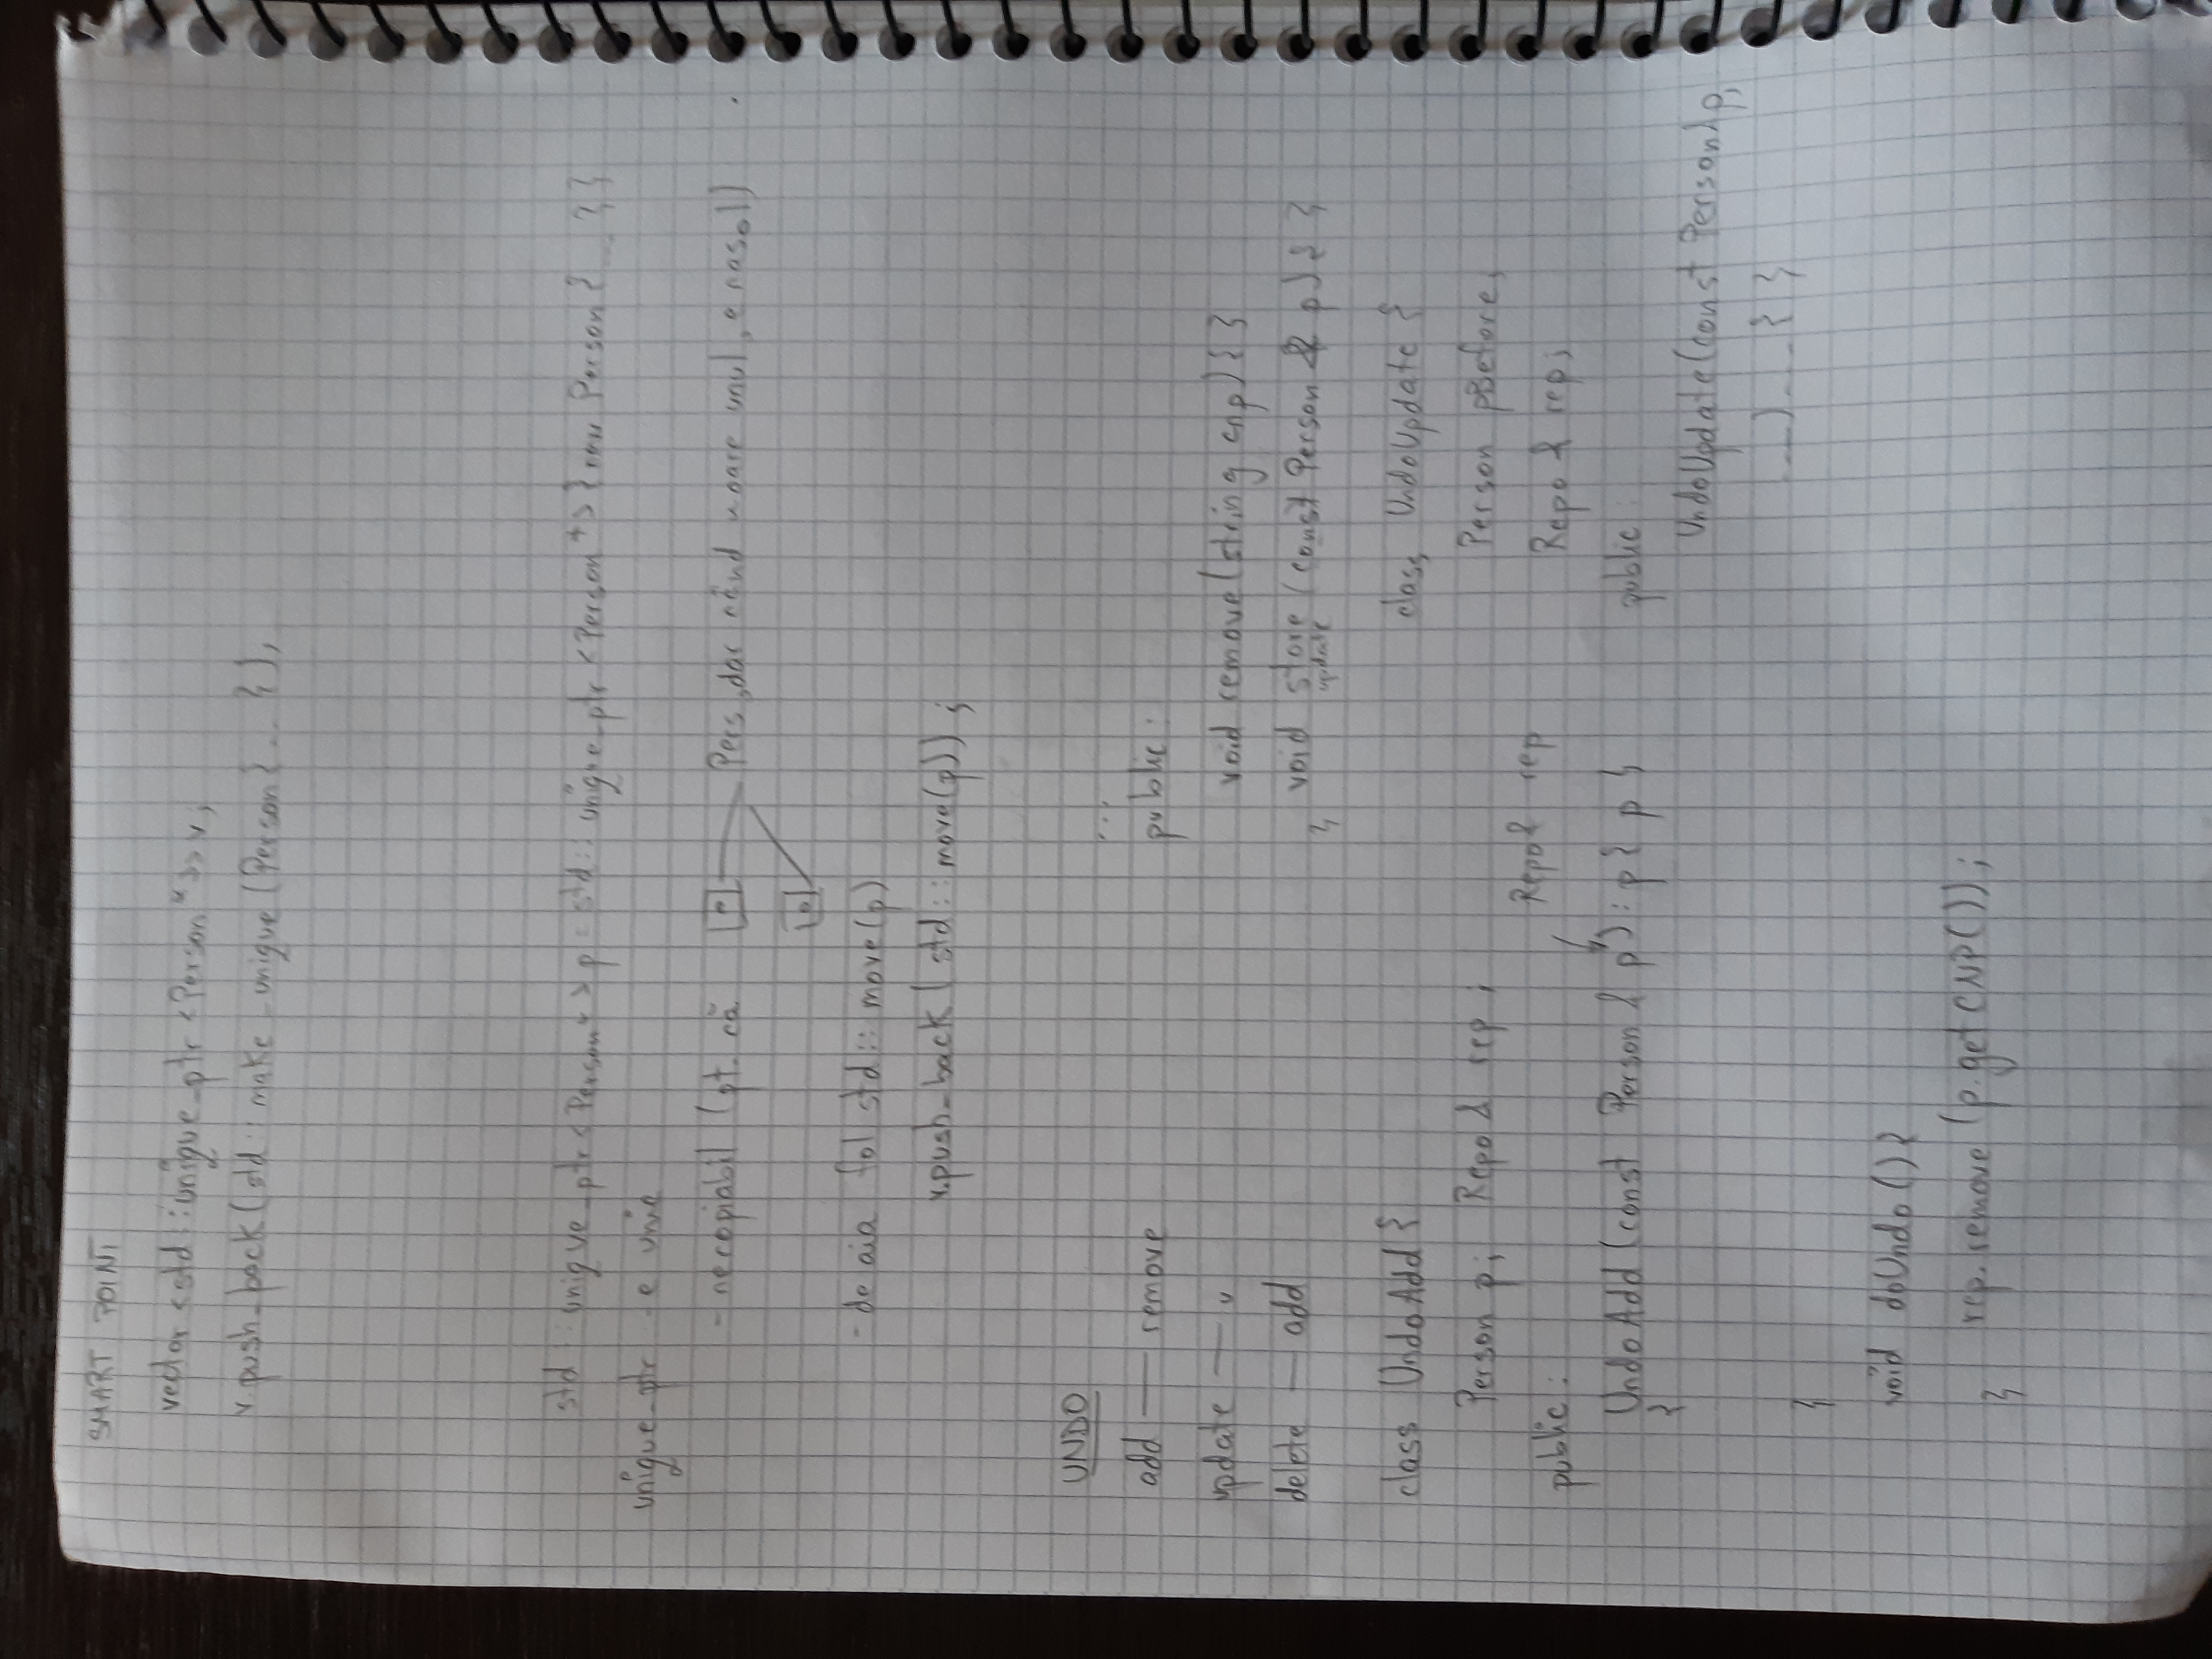 SMART POINT
vector <std::unique_ptr <Person*>> v;
v.push_back(std::make_unique (Person{...});
std::unique_ptr<Person*> p = std::unique_ptr <Person*>{new Person{...}}
unique_ptr - e unic
- necopiabil (pt. că p Pers, dar când moare unul, e nasol)
p
- de aia fol std::move(p)
v.push_back(std::move(p));
UNDO
...
add — remove
public:
update — u
void remove(string cnp) { }
delete — add
void store (const Person & p) { }
update
};
class UndoAdd {
Person p; Repo& rep;
public:
Repo& rep
UndoAdd (const Person & p) : p{ p }
{
}
void doUndo () {
rep.remove (p.getCNP());
}
class UndoUpdate {
Person pBefore;
Repo & rep;
public:
UndoUpdate(const Person& p,
...) ... { }